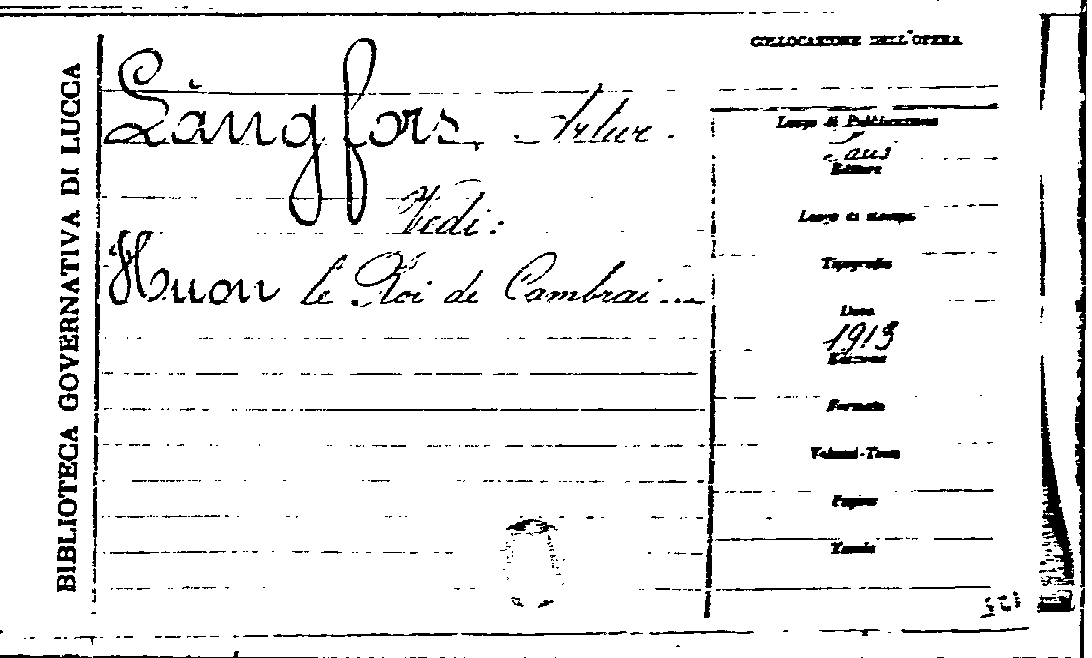 BIBLIOTECA GOVERNATIVA DI LUCCA
COLLOCAZIONE DELL'OPERA
Långfors, Artur.
Vedi:
Huon le Roi de Cambrai...
Luogo di Pubblicazione
Editore
Luogo di stampa
Tipografia
Data
1913
Edizione
Formato
Volumi-Tomi
Pagine
Tavole